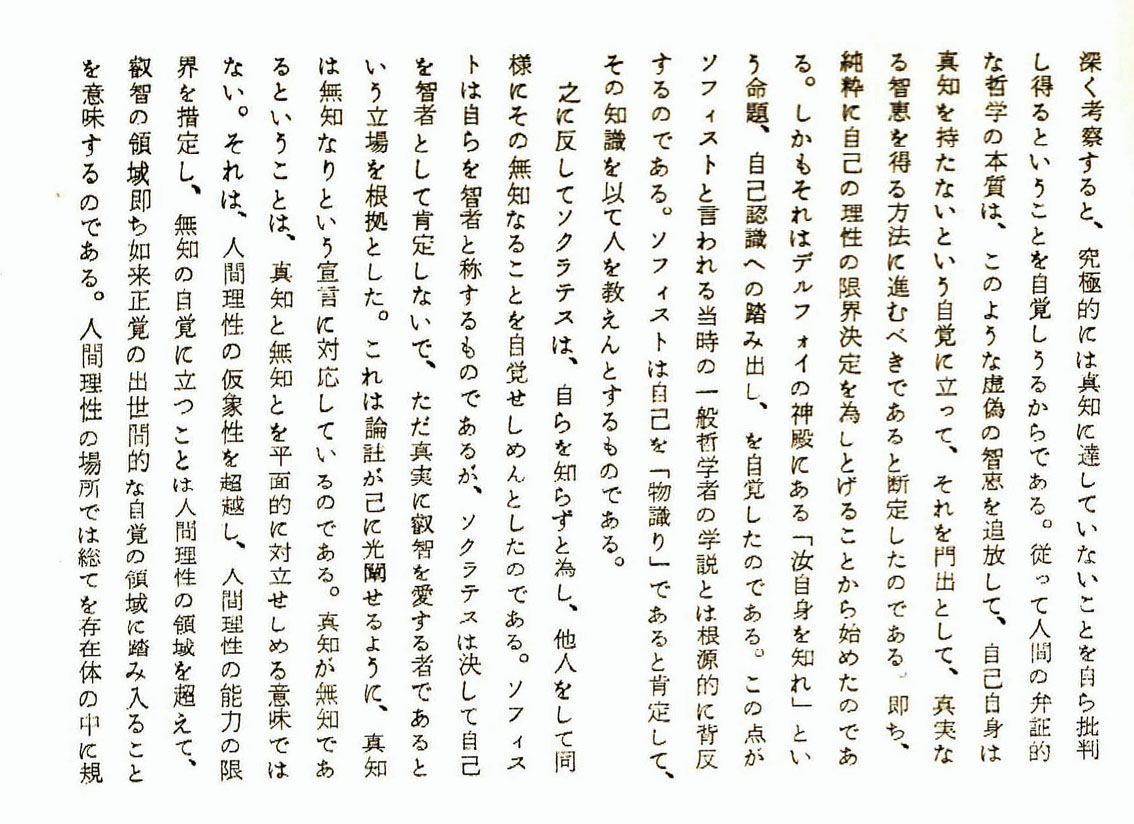 深く考察すると、究極的には真知に達していないことを自ら批判
し得るということを自覚しうるからである。従って人間の弁証的
な哲学の本質は、このような虚偽の智恵を追放して、自己自身は
真知を持たないという自覚に立って、それを門出として、真実な
る智恵を得る方法に進むべきであると断定したのである。即ち、
純粋に自己の理性の限界決定を為しとげることから始めたのであ
る。しかもそれはデルフォイの神殿にある「汝自身を知れ」とい
う命題、自己認識への踏み出し、を自覚したのである。この点が
ソフィストと言われる当時の一般哲学者の学説とは根源的に背反
するのである。ソフィストは自己を「物識り」であると肯定して、
その知識を以て人を教えんとするものである。
之に反してソクラテスは、自らを知らずと為し、他人をして同
様にその無知なることを自覚せしめんとしたのである。ソフィス
トは自らを智者と称するものであるが、ソクラテスは決して自己
を智者として肯定しないで、ただ真実に叡智を愛する者であると
いう立場を根拠とした。これは論註が己に光闡せるように、真知
は無知なりという宣言に対応しているのである。真知が無知であ
るということは、真知と無知とを平面的に対立せしめる意味では
ない。それは、人間理性の仮象性を超越し、人間理性の能力の限
界を措定し、無知の自覚に立つことは人間理性の領域を超えて、
叡智の領域即ち如来正覚の出世間的な自覚の領域に踏み入ること
を意味するのである。人間理性の場所では総てを存在体の中に規